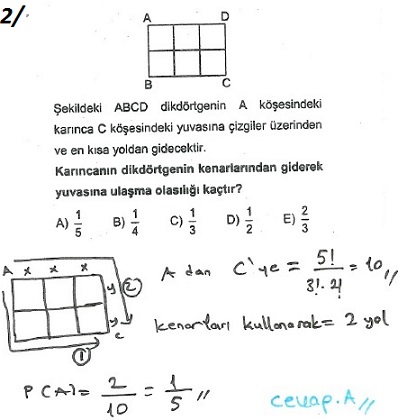 2/
A D
B C
Şekildeki ABCD dikdörtgenin A köşesindeki
karınca C köşesindeki yuvasına çizgiler üzerinden
ve en kısa yoldan gidecektir.
Karıncanın dikdörtgenin kenarlarından giderek
yuvasına ulaşma olasılığı kaçtır?
A) 1/5 B) 1/4 C) 1/3 D) 1/2 E) 2/3
A x x x
y ②
y
C
①
A dan C'ye = 5!/3!.2! = 10,,
kenarları kullanarak = 2 yol
P(A) = 2/10 = 1/5 ,,
cevap.A,,